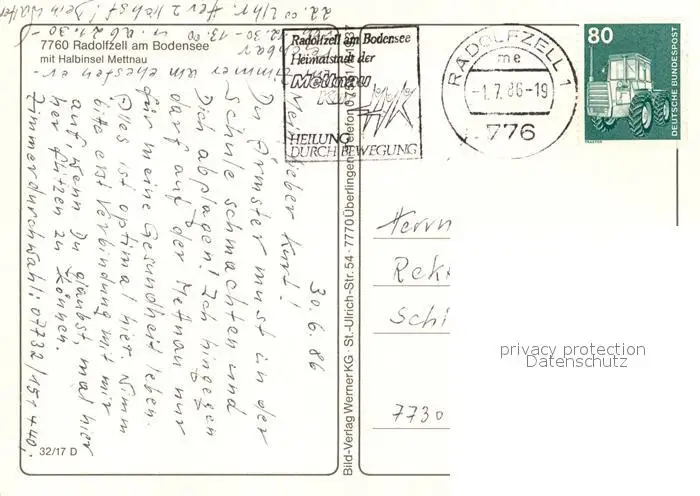 7760 Radolfzell am Bodensee
mit Halbinsel Mettnau
Radolfzell am Bodensee
Heimatstadt der
Mettnau
HEILUNG
DURCH BEWEGUNG
RADOLFZELL 1
me
-1.7.86-19
776
80
DEUTSCHE BUNDESPOST
30.6.86
lieber Kurt!
Du Ärmster musst in der
Schule schmachten und
Dich abplagen! Ich hingegen
darf auf der Mettnau nur
für meine Gesundheit leben.
Alles ist optimal hier. Nimm
bitte erst Verbindung mit mir
auf, wenn Du glaubst, mal hier
her flitzen zu können.
Zimmerdurchwahl: 07732/151+440,
Zimmer am ehesten er-
12.30-13.00 u. ab 21.30-
22.00 Uhr. Herzlichst! Dein Walter
Bild-Verlag Werner KG · St.-Ulrich-Str. 54 · 7770 Überlingen · Telefon
Herrn
7730
privacy protection
Datenschutz
32/17 D